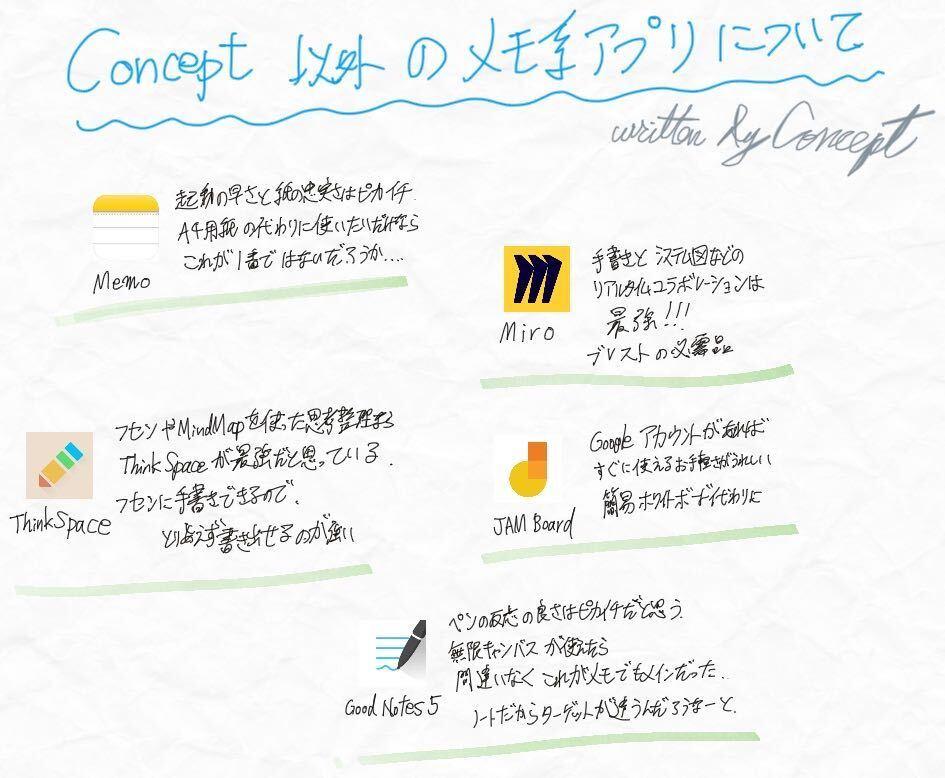 Concept 以外のメモ系アプリについて
written by Concept
起動の早さと紙の忠実さはピカイチ.
A4用紙の代わりに使いたいだけなら
これが1番ではないだろうか....
Memo
手書きと システム図などの
リアルタイムコラボレーションは
最強!!!
ブレストの必需品
Miro
フセンやMindMapを使った思考整理なら
ThinkSpaceが最強だと思っている.
フセンに手書きできるので、
とりあえず書き出せるのが強い
ThinkSpace
Google アカウントがあれば
すぐに使えるお手軽さがうれしい
簡易ホワイトボード代わりに
JAM Board
ペンの反応の良さはピカイチだと思う.
無限キャンバスが使えたら
間違いなくこれがメモでもメインだった.
ノートだからターゲットが違うんだろうなーと.
Good Notes 5